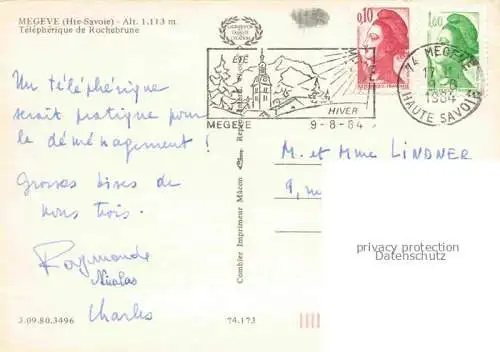 MEGEVE (Hte-Savoie) - Alt. 1.113 m.
Téléphérique de Rochebrune
Un téléphérique
serait pratique pour
le déménagement !
Grosses bises de
nous trois.
Raymonde
Nicolas
Charles
3.09.80.3496
74.173
Combier Imprimeur Mâcon
ÉTÉ
HIVER
MEGEVE
9-8-84
0,10
1,60
74 MEGEVE
17
1984
HAUTE SAVOIE
M. et Mme LINDNER
9, rue
privacy protection
Datenschutz